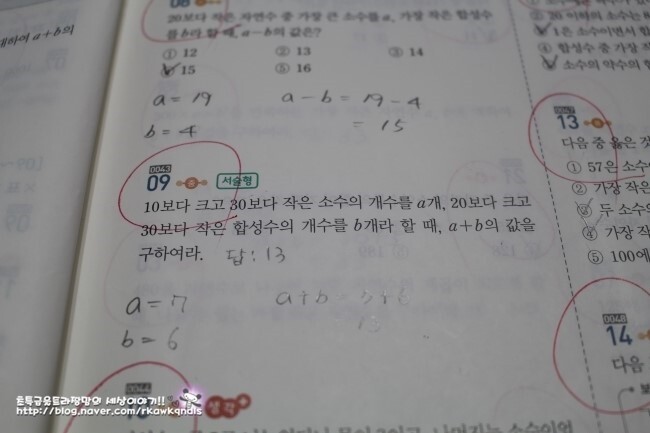 대하여 a+b의
08
20보다 작은 자연수 중 가장 큰 소수를 a, 가장 작은 합성수
를 b라 할 때, a-b의 값은?
① 12 ② 13 ③ 14
④ 15 ⑤ 16
a = 19 a - b = 19 - 4
b = 4 = 15
0043
09 중 서술형
10보다 크고 30보다 작은 소수의 개수를 a개, 20보다 크고
30보다 작은 합성수의 개수를 b개라 할 때, a+b의 값을
구하여라. 답 : 13
a = 7 a+b =
b = 6 13
0044
생각+
② 20 이하의 소수는 8
1은 소수이면서 합
④ 합성수 중 가장 작
소수의 약수의
0047
13
다음 중 옳은 것
① 57은 소수이
② 가장 작은
③ 두 소수의
④ 가장 작
⑤ 100에
0048
14
다음
초특급울트라짱맘의 세상이야기!!
http://blog.naver.com/rkawkqndls